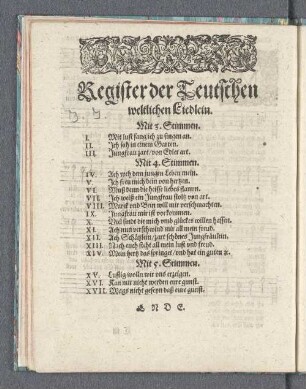 Register der Teutschen
weltlichen Liedlein.
Mit 3. Stimmen.
I. Mit lust fang ich zu singen an.
II. Ich sah in einem Garten.
III. Jungfrau zart / von Edler art.
Mit 4. Stimmen.
IV. Ach weh dem jungen Leben mein.
V. Ich freu mich dein von hertzen.
VI. Muß dann die heisse liebes flamm.
VII. Ich weiß ein Jungfrau stoltz von art.
VIII. Mars und Bien will mir verschmachten.
IX. Jungfrau mir ist vorkommen.
X. Viel sind die mich und glückes willen hassen.
XI. Ach nun verschwind mir all mein freud.
XII. Ach Schätzlein / zart schönes Jungfräulein.
XIII. Nach euch steht all mein lust und freud.
XIV. Mein hertz das springet / und hat ein guten
Mit 5. Stimmen.
XV. Lustig wolln wir uns erzeigen.
XVI. Kan mir nicht werden eure gunst.
XVII. Mags nicht geseyn daß eure gunst.
ENDE.